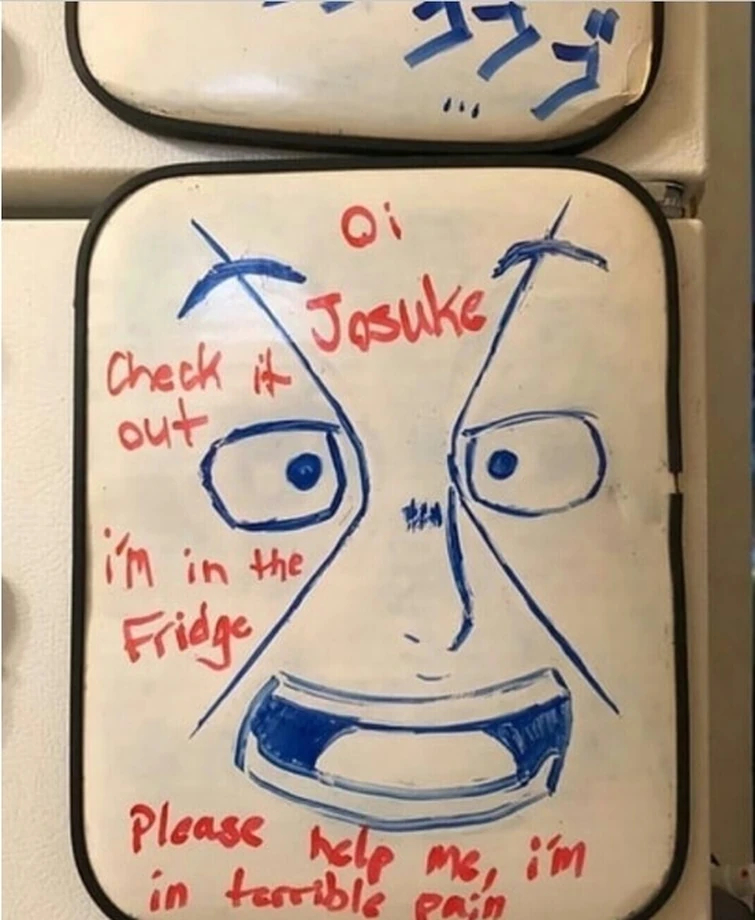 ゴゴゴ
...
Oi
Josuke
Check it
out
i'm in the
Fridge
Please help me, i'm
in terrible pain